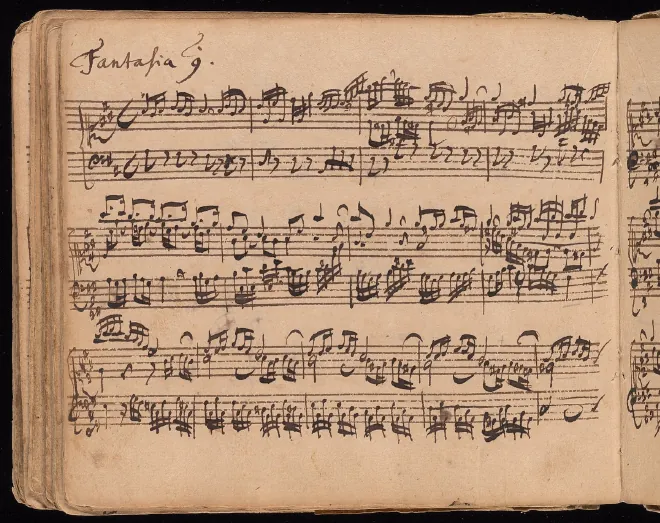 Fantaſia 9.